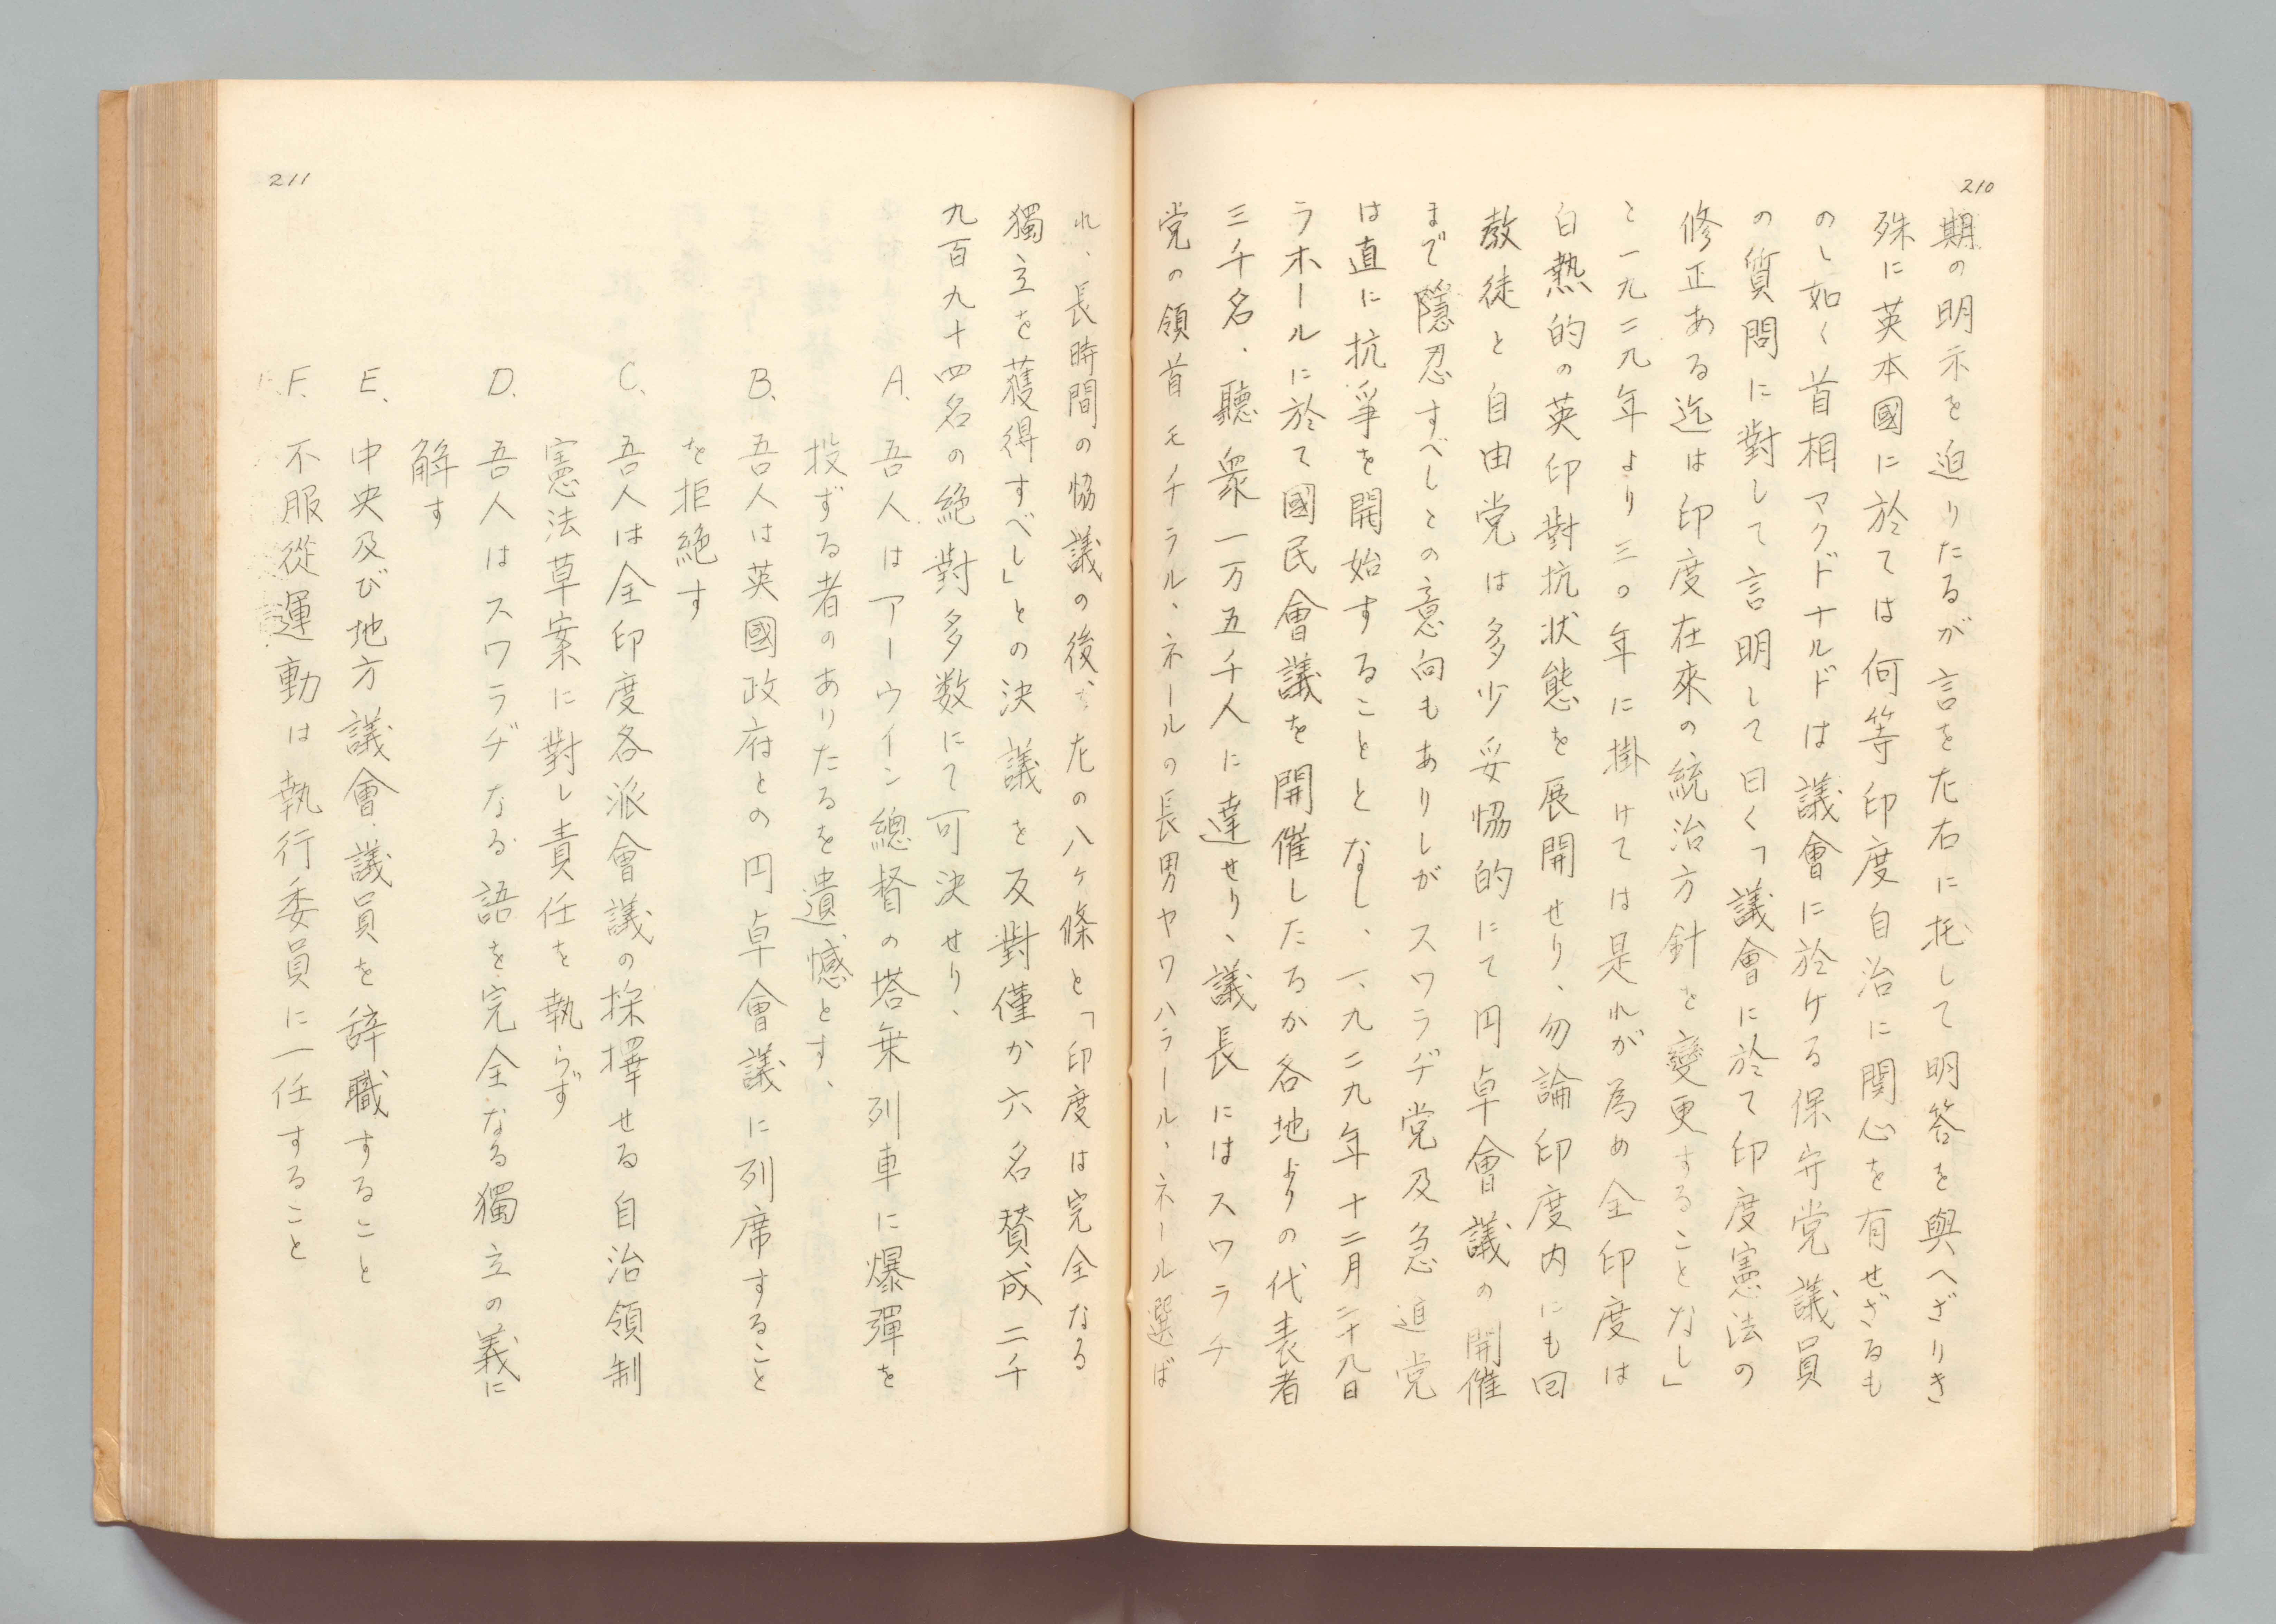 210
期の明示を迫りたるが言を左右に托して明答を與へざりき
殊に英本國に於ては何等印度自治に関心を有せざるも
のゝ如く首相マクドナルドは議會に於ける保守党議員
の質問に對して言明して曰く「議會に於て印度憲法の
修正ある迄は印度在來の統治方針を變更することなし」
と一九二九年より三〇年に掛けては是れが為め全印度は
白熱的の英印對抗状態を展開せり、勿論印度内にも回
教徒と自由党は多少妥協的にて円卓會議の開催
まで隱忍すべしとの意向もありしがスワラヂ党及急進党
は直に抗爭を開始することとなし、一、九二九年十二月二十九日
ラホールに於て國民會議を開催したるが各地よりの代表者
三千名、聽衆一万五千人に達せり、議長にはスワラチ
党の領首モチラル、ネールの長男ヤワハラール、ネール選ば
211
れ、長時間の協議の後、左の八ヶ條と「印度は完全なる
獨立を獲得すべし」との決議を反對僅か六名賛成二千
九百九十四名の絶對多数にて可決せり、
A、吾人はアーウイン總督の塔乗列車に爆彈を
投ずる者のありたるを遺憾とす、
B、吾人は英國政府との円卓會議に列席すること
を拒絶す
C、吾人は全印度各派會議の採擇せる自治領制
憲法草案に對し責任を執らず
D、吾人はスワラヂなる語を完全なる獨立の義に
解す
E、中央及び地方議會議員を辞職すること
F、不服從運動は執行委員に一任すること